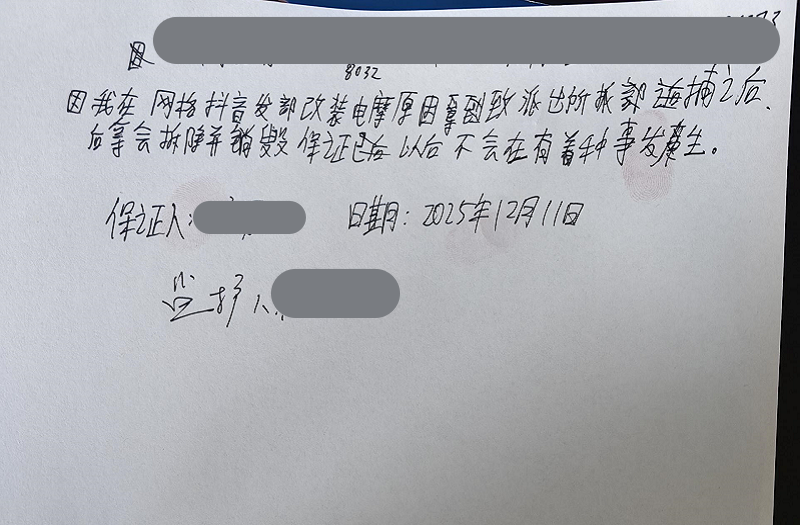 因
8032
因我在网络抖音发部改装电摩原因导致派出所抓部逮捕之后、
后等会拆除并销毁 保证是后以后不会在有着种事发生。
保证人: 日期: 2025年12月11日
监护人: